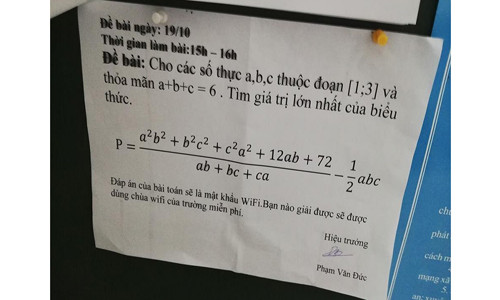 Đề bài ngày: 19/10
Thời gian làm bài:15h – 16h
Đề bài: Cho các số thực a,b,c thuộc đoạn [1;3] và
thỏa mãn a+b+c = 6 . Tìm giá trị lớn nhất của biểu
thức.
P = \frac{a²b² + b²c² + c²a² + 12ab + 72}{ab + bc + ca} − \frac{1}{2} abc
Đáp án của bài toán sẽ là mật khẩu WiFi.Bạn nào giải được sẽ được
dùng chùa wifi của trường miễn phí.
Hiệu trưởng
Phạm Văn Đức
phát
cách m
mạng xã
5.